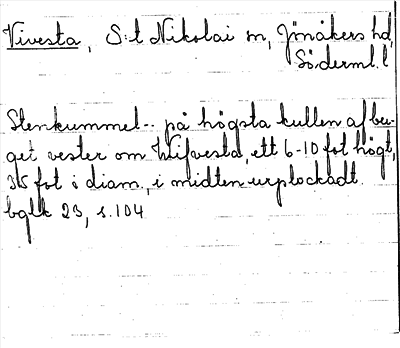 Vivesta, S:t Nikolai sn, Jönåkers hd,
Söderml. l
Stenkummel-- på högsta kullen af ber-
get vester om Wifvesta, ett 6-10 fot högt,
35 fot i diam., i midten urplockadt.
bglk 23, s. 104